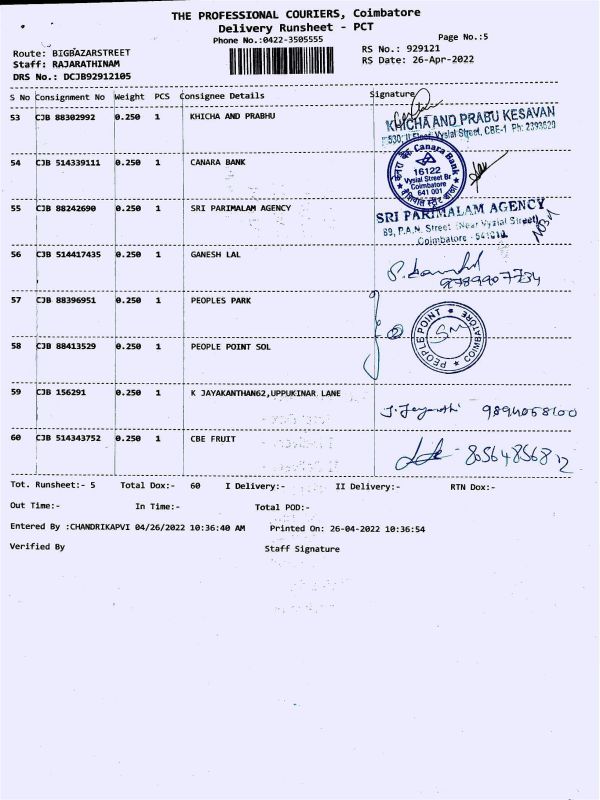 THE PROFESSIONAL COURIERS, Coimbatore
Delivery Runsheet - PCT
Phone No.:0422-3505555
Page No.:5
Route: BIGBAZARSTREET
RS No.: 929121
Staff: RAJARATHINAM
RS Date: 26-Apr-2022
DRS No.: DCJB92912105
S No Consignment No Weight PCS Consignee Details Signature
53 CJB 88302992 0.250 1 KHICHA AND PRABHU
KHICHA AND PRABU KESAVAN
530, II Floor, Vysial Street, CBE-1 Ph: 2393620
54 CJB 514339111 0.250 1 CANARA BANK
Canara Bank
16122
Vysial Street Br
Coimbatore
641 001
55 CJB 88242690 0.250 1 SRI PARIMALAM AGENCY
SRI PARIMALAM AGENCY
89, P.A.N. Street (Near Vysial Street)
Coimbatore
56 CJB 514417435 0.250 1 GANESH LAL
9789907734
57 CJB 88396951 0.250 1 PEOPLES PARK
PEOPLE POINT
COIMBATORE
58 CJB 88413529 0.250 1 PEOPLE POINT SOL
59 CJB 156291 0.250 1 K JAYAKANTHAN62,UPPUKINAR LANE
J. Jeyanthi 9894058100
60 CJB 514343752 0.250 1 CBE FRUIT
Tot. Runsheet:- 5 Total Dox:- 60 I Delivery:- II Delivery:- RTN Dox:-
Out Time:- In Time:- Total POD:-
Entered By :CHANDRIKAPVI 04/26/2022 10:36:40 AM Printed On: 26-04-2022 10:36:54
Verified By Staff Signature